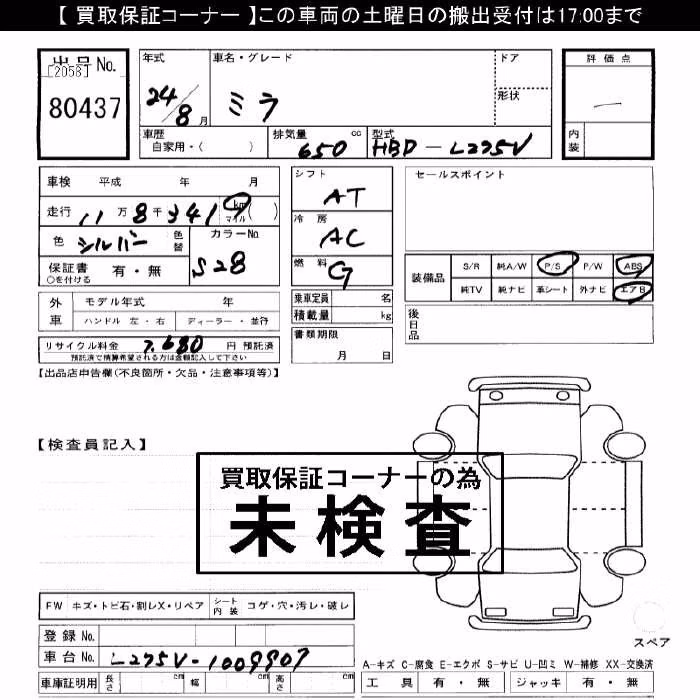 【 買取保証コーナー 】この車両の土曜日の搬出受付は17:00まで
出品No.
[2058]
80437
年式
24/8月
車名・グレード
ミラ
ドア
形状
評価点
―
内装
車歴
自家用・( )
排気量 cc
650
型式
HBD-L275V
車検 平成 年 月
走行 11万8千341 km マイル ( )
色 シルバー 色替
カラーNo.
S28
保証書 有・無
○を付ける
シフト
AT
冷房
AC
燃料
G
乗車定員 名
積載量 kg
書類期限
月 日
セールスポイント
装備品 S/R 純A/W P/S P/W ABS
純TV 純ナビ 革シート 外ナビ エアB
後日品
外車 モデル年式 年
ハンドル 左・右 ディーラー・並行
リサイクル料金 7.680 円 預託済
預託済で精算希望される方は金額記入して下さい
【出品店申告欄(不良箇所・欠品・注意事項等)】
【検査員記入】
買取保証コーナーの為
未検査
FW キズ・トビ石・割レX・リペア シート内装 コゲ・穴・汚レ・破レ
登録No.
車台No. L275V-1009907
車庫証明用 長さ cm 幅 cm 高さ cm
スペア
A-キズ C-腐食 E-エクボ S-サビ U-凹ミ W-補修 XX-交換済
工具 有・無 ジャッキ 有・無